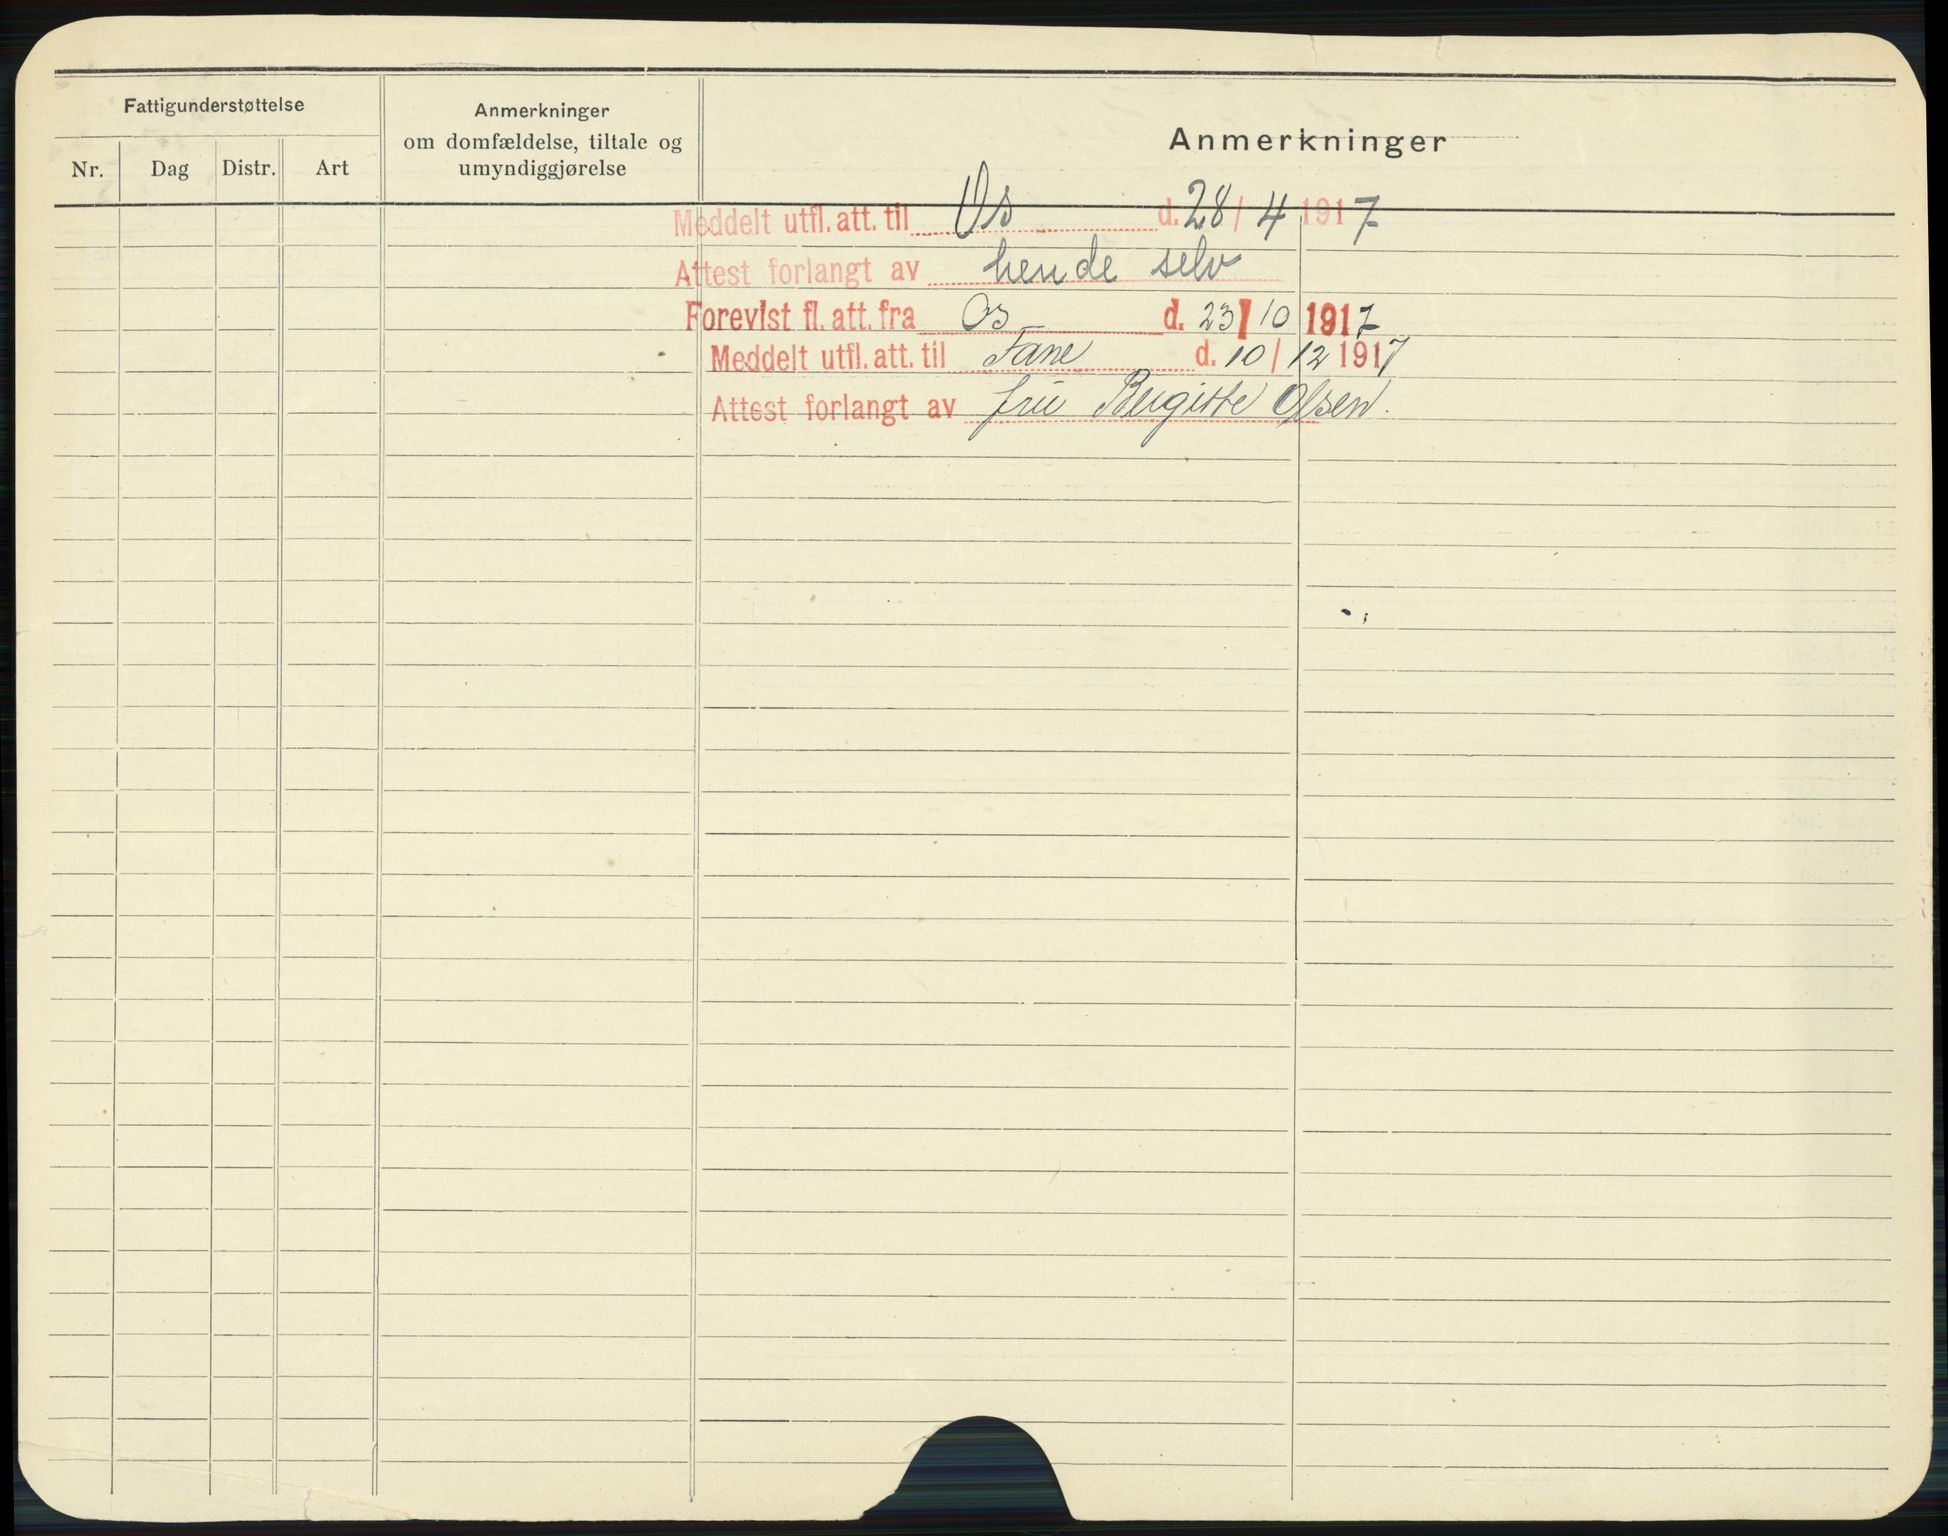 Fattigunderstøttelse
Nr. Dag Distr. Art
Anmerkninger
om domfældelse, tiltale og
umyndiggjørelse
Anmerkninger
Meddelt utfl. att. til Os d. 28/4 1917
Attest forlangt av hende selv
Forevist fl. att. fra Os d. 23/10 1917
Meddelt utfl. att. til Fane d. 10/12 1917
Attest forlangt av fru Birgitte Olsen.